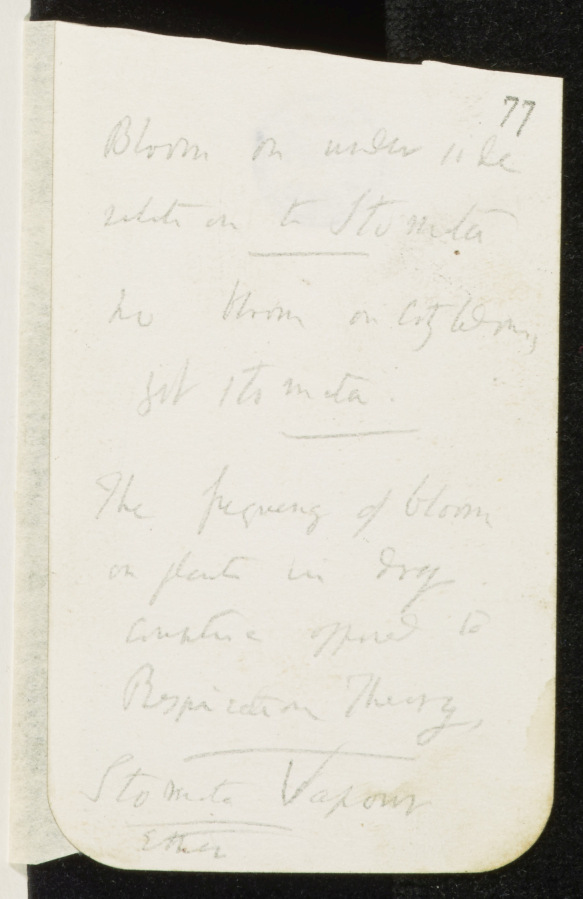 77
Bloom on under side
relation to Stomata
no bloom on Cotyledons,
yet stomata.
The frequency of bloom
on plants in dry
countries opposed to
Respiration Theory,
Stomata Vapour
Ether